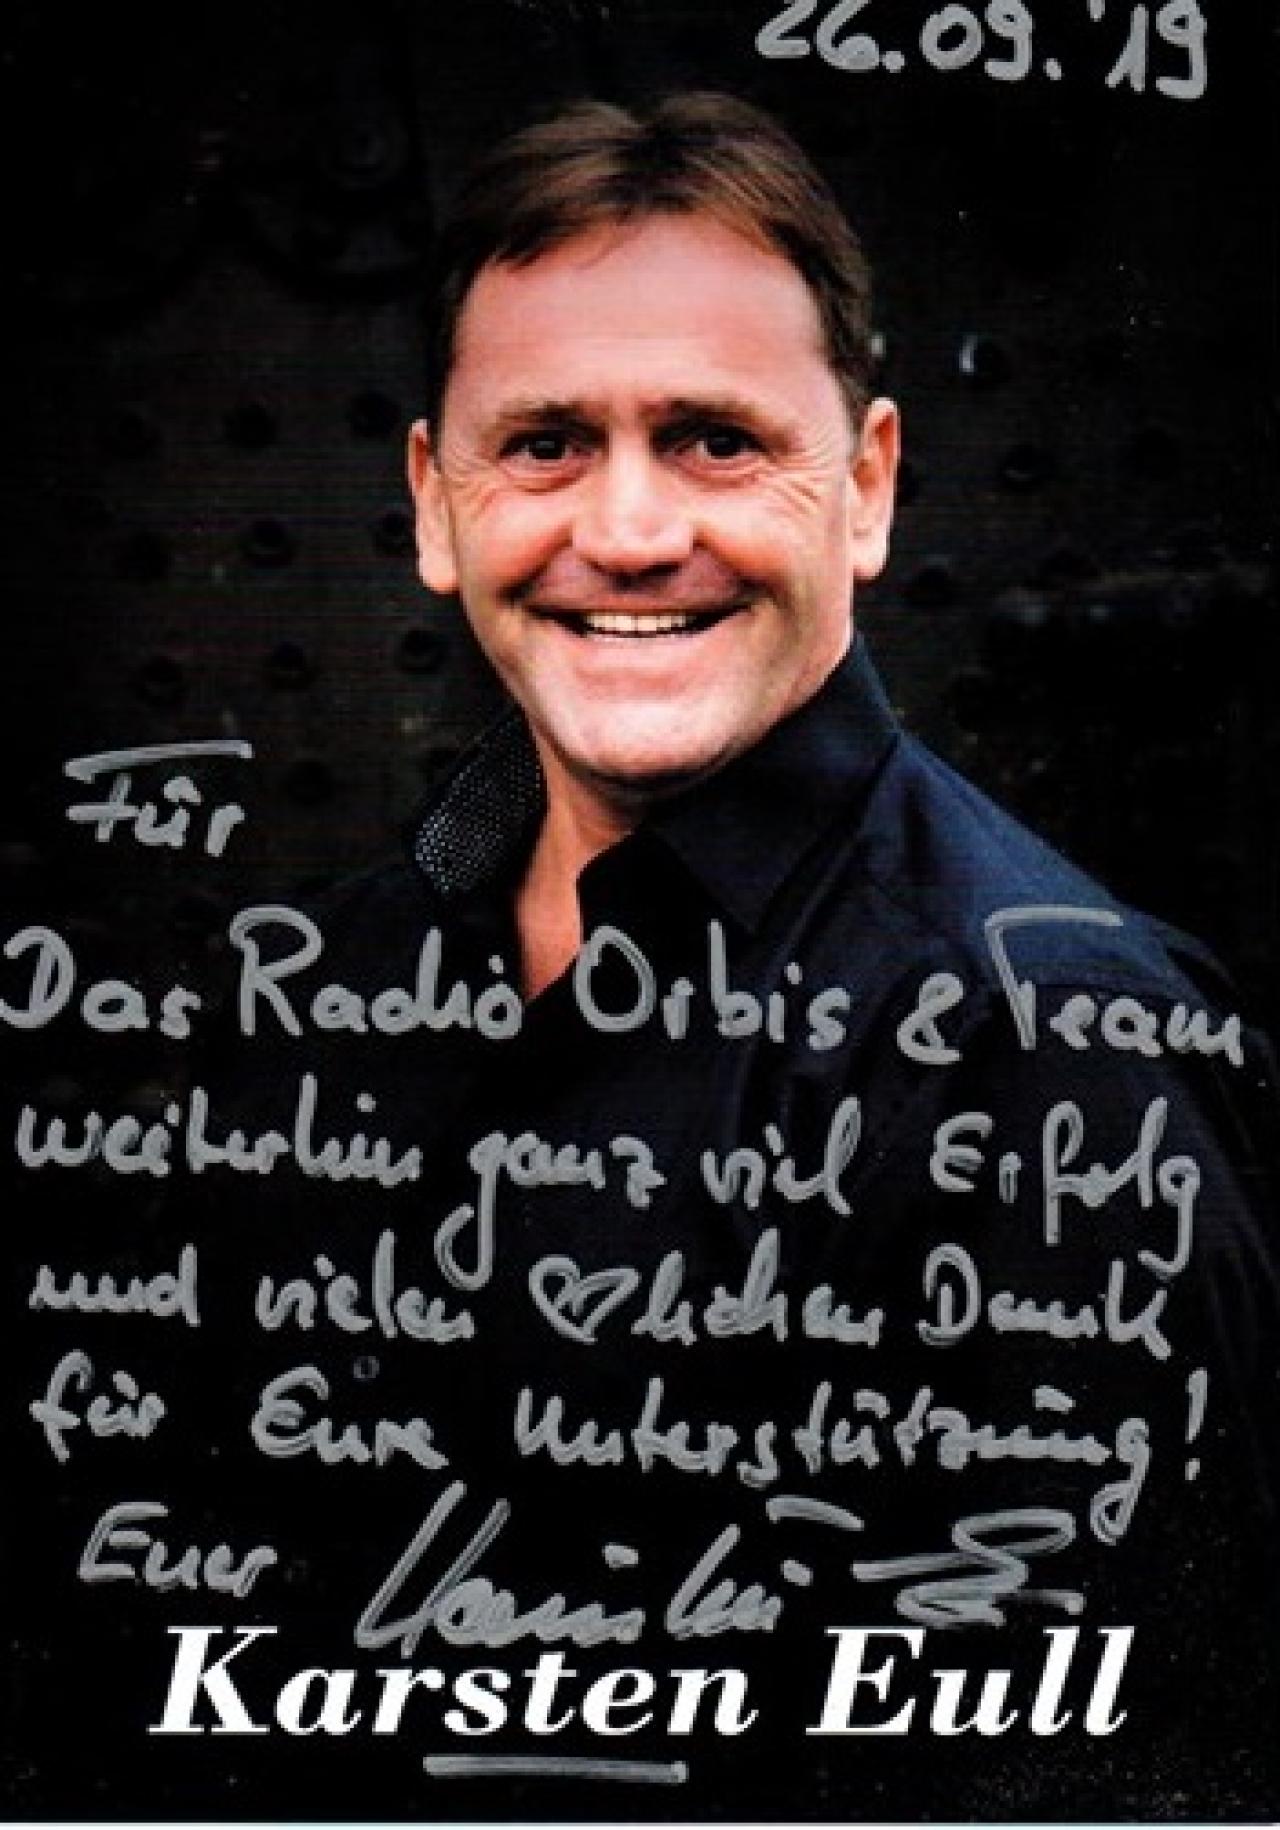 26.09.'19
Für
Das Radio Orbis & Team
weiterhin ganz viel Erfolg
und vielen ♡lichen Dank
für Eure Unterstützung!
Euer
Karsten Eull